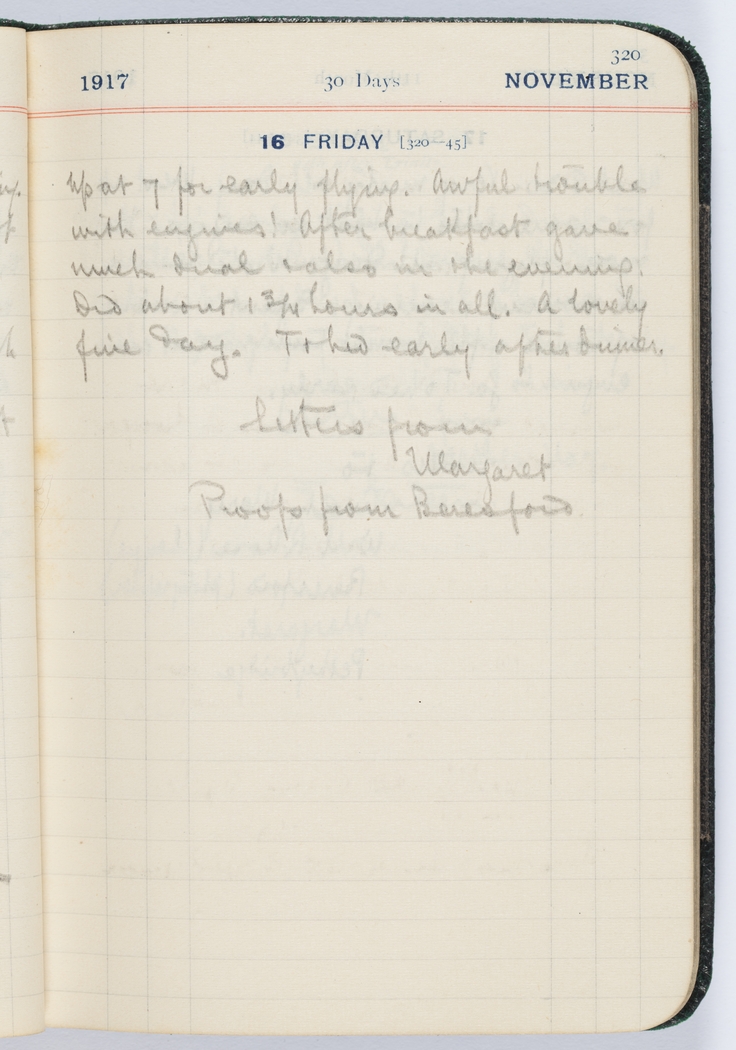 320
1917 30 Days NOVEMBER
16 FRIDAY [320—45]
Up at 7 for early flying. Awful trouble
with engines! After breakfast gave
much dual & also in the evening.
Did about 1 3/4 hours in all. A lovely
fine day. To bed early after dinner.
Letters from
Margaret
Proofs from Beresford